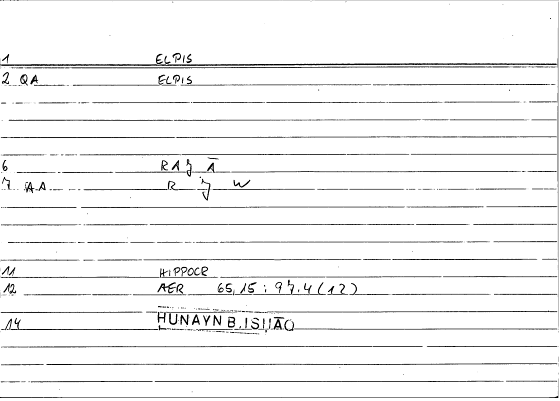 1 ELPIS
2 QA ELPIS
6 RAJ Ā
7 AA R J W
11 HIPPOCR
12 AER 65,15 : 97.4 (12)
14 HUNAYN B. ISḤĀQ